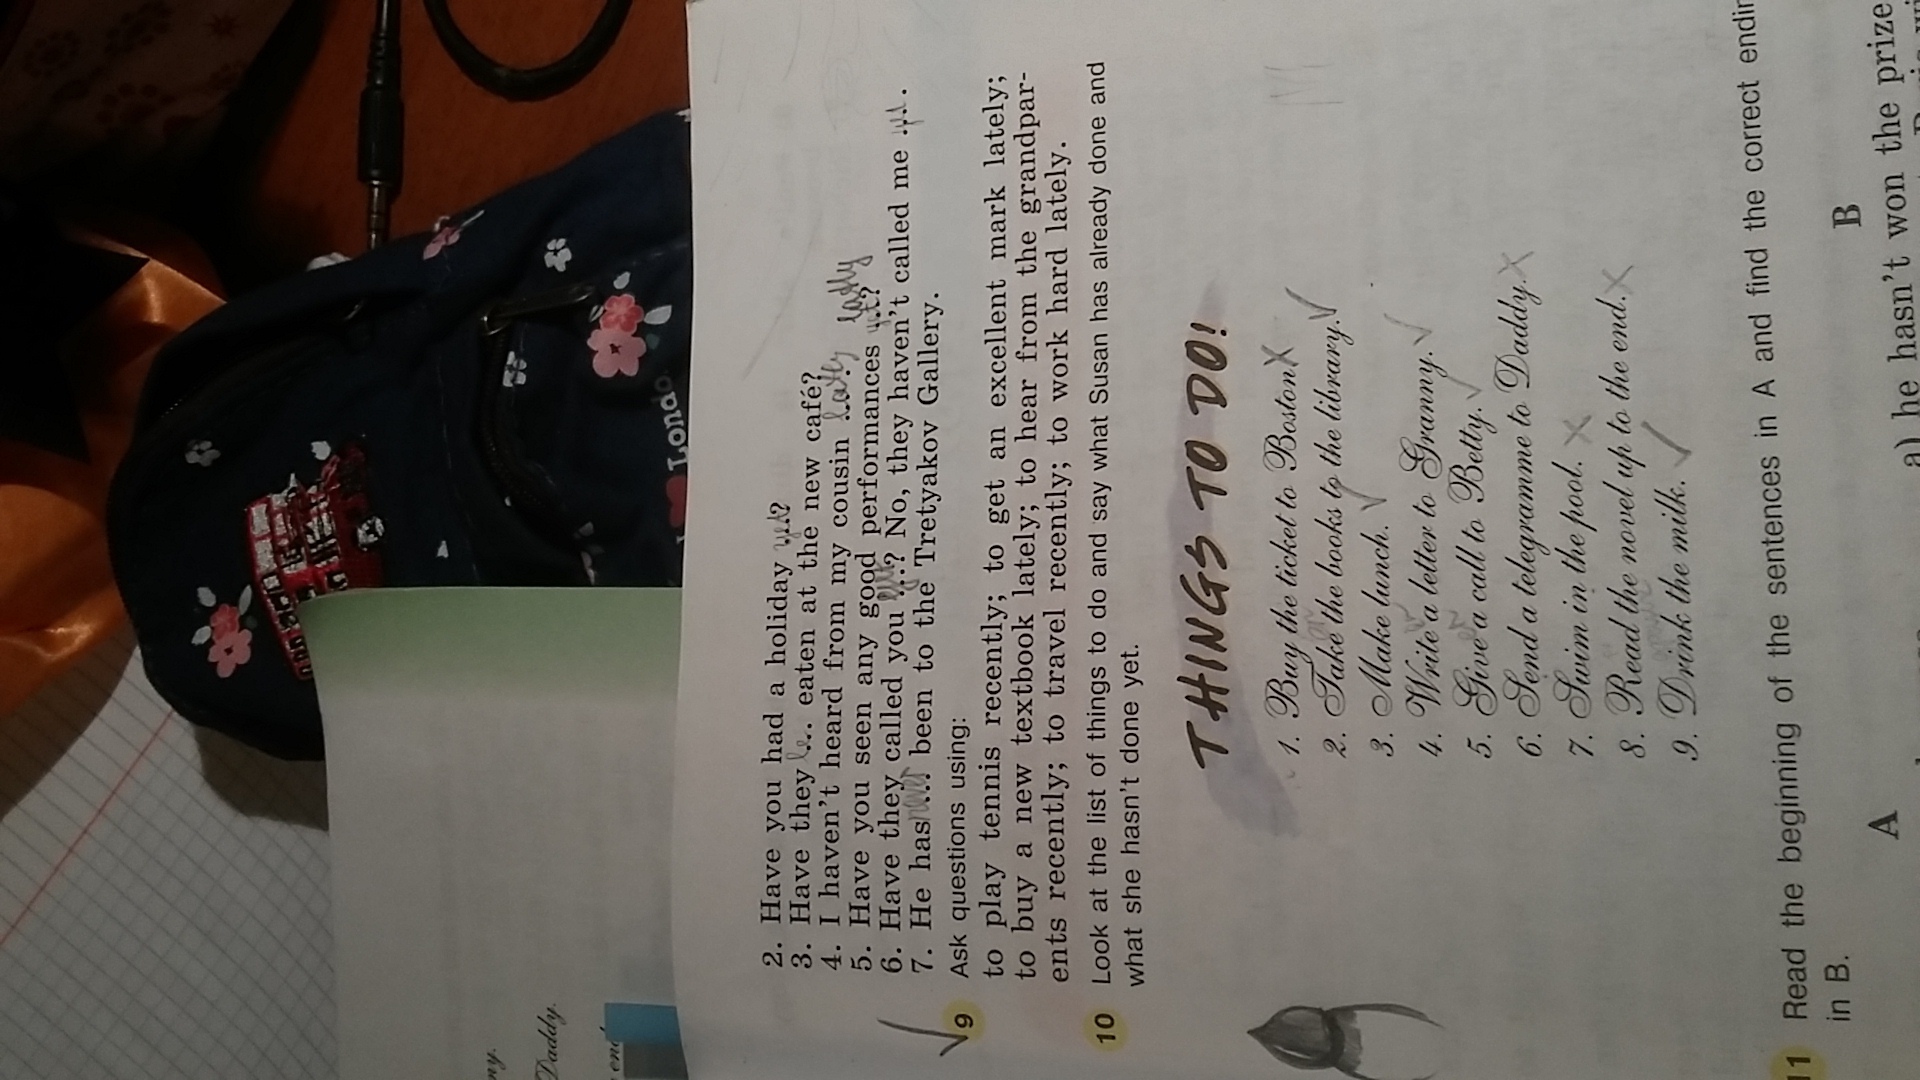 2. Have you had a holiday yet?
3. Have they ... eaten at the new café?
4. I haven't heard from my cousin lately
5. Have you seen any good performances ...? lately
6. Have they called you ...? No, they haven't called me ... .
7. He has never been to the Tretyakov Gallery.
9 Ask questions using:
to play tennis recently; to get an excellent mark lately;
to buy a new textbook lately; to hear from the grandpar-
ents recently; to travel recently; to work hard lately.
10 Look at the list of things to do and say what Susan has already done and
what she hasn't done yet.
THINGS TO DO!
1. Buy the ticket to Boston
2. Take the books to the library.
3. Make lunch.
4. Write a letter to Granny.
5. Give a call to Betty.
6. Send a telegramme to Daddy.
7. Swim in the pool.
8. Read the novel up to the end.
9. Drink the milk.
11 Read the beginning of the sentences in A and find the correct endin
in B.
A B
a) he hasn't won the prize
ny.
Daddy.
end
London